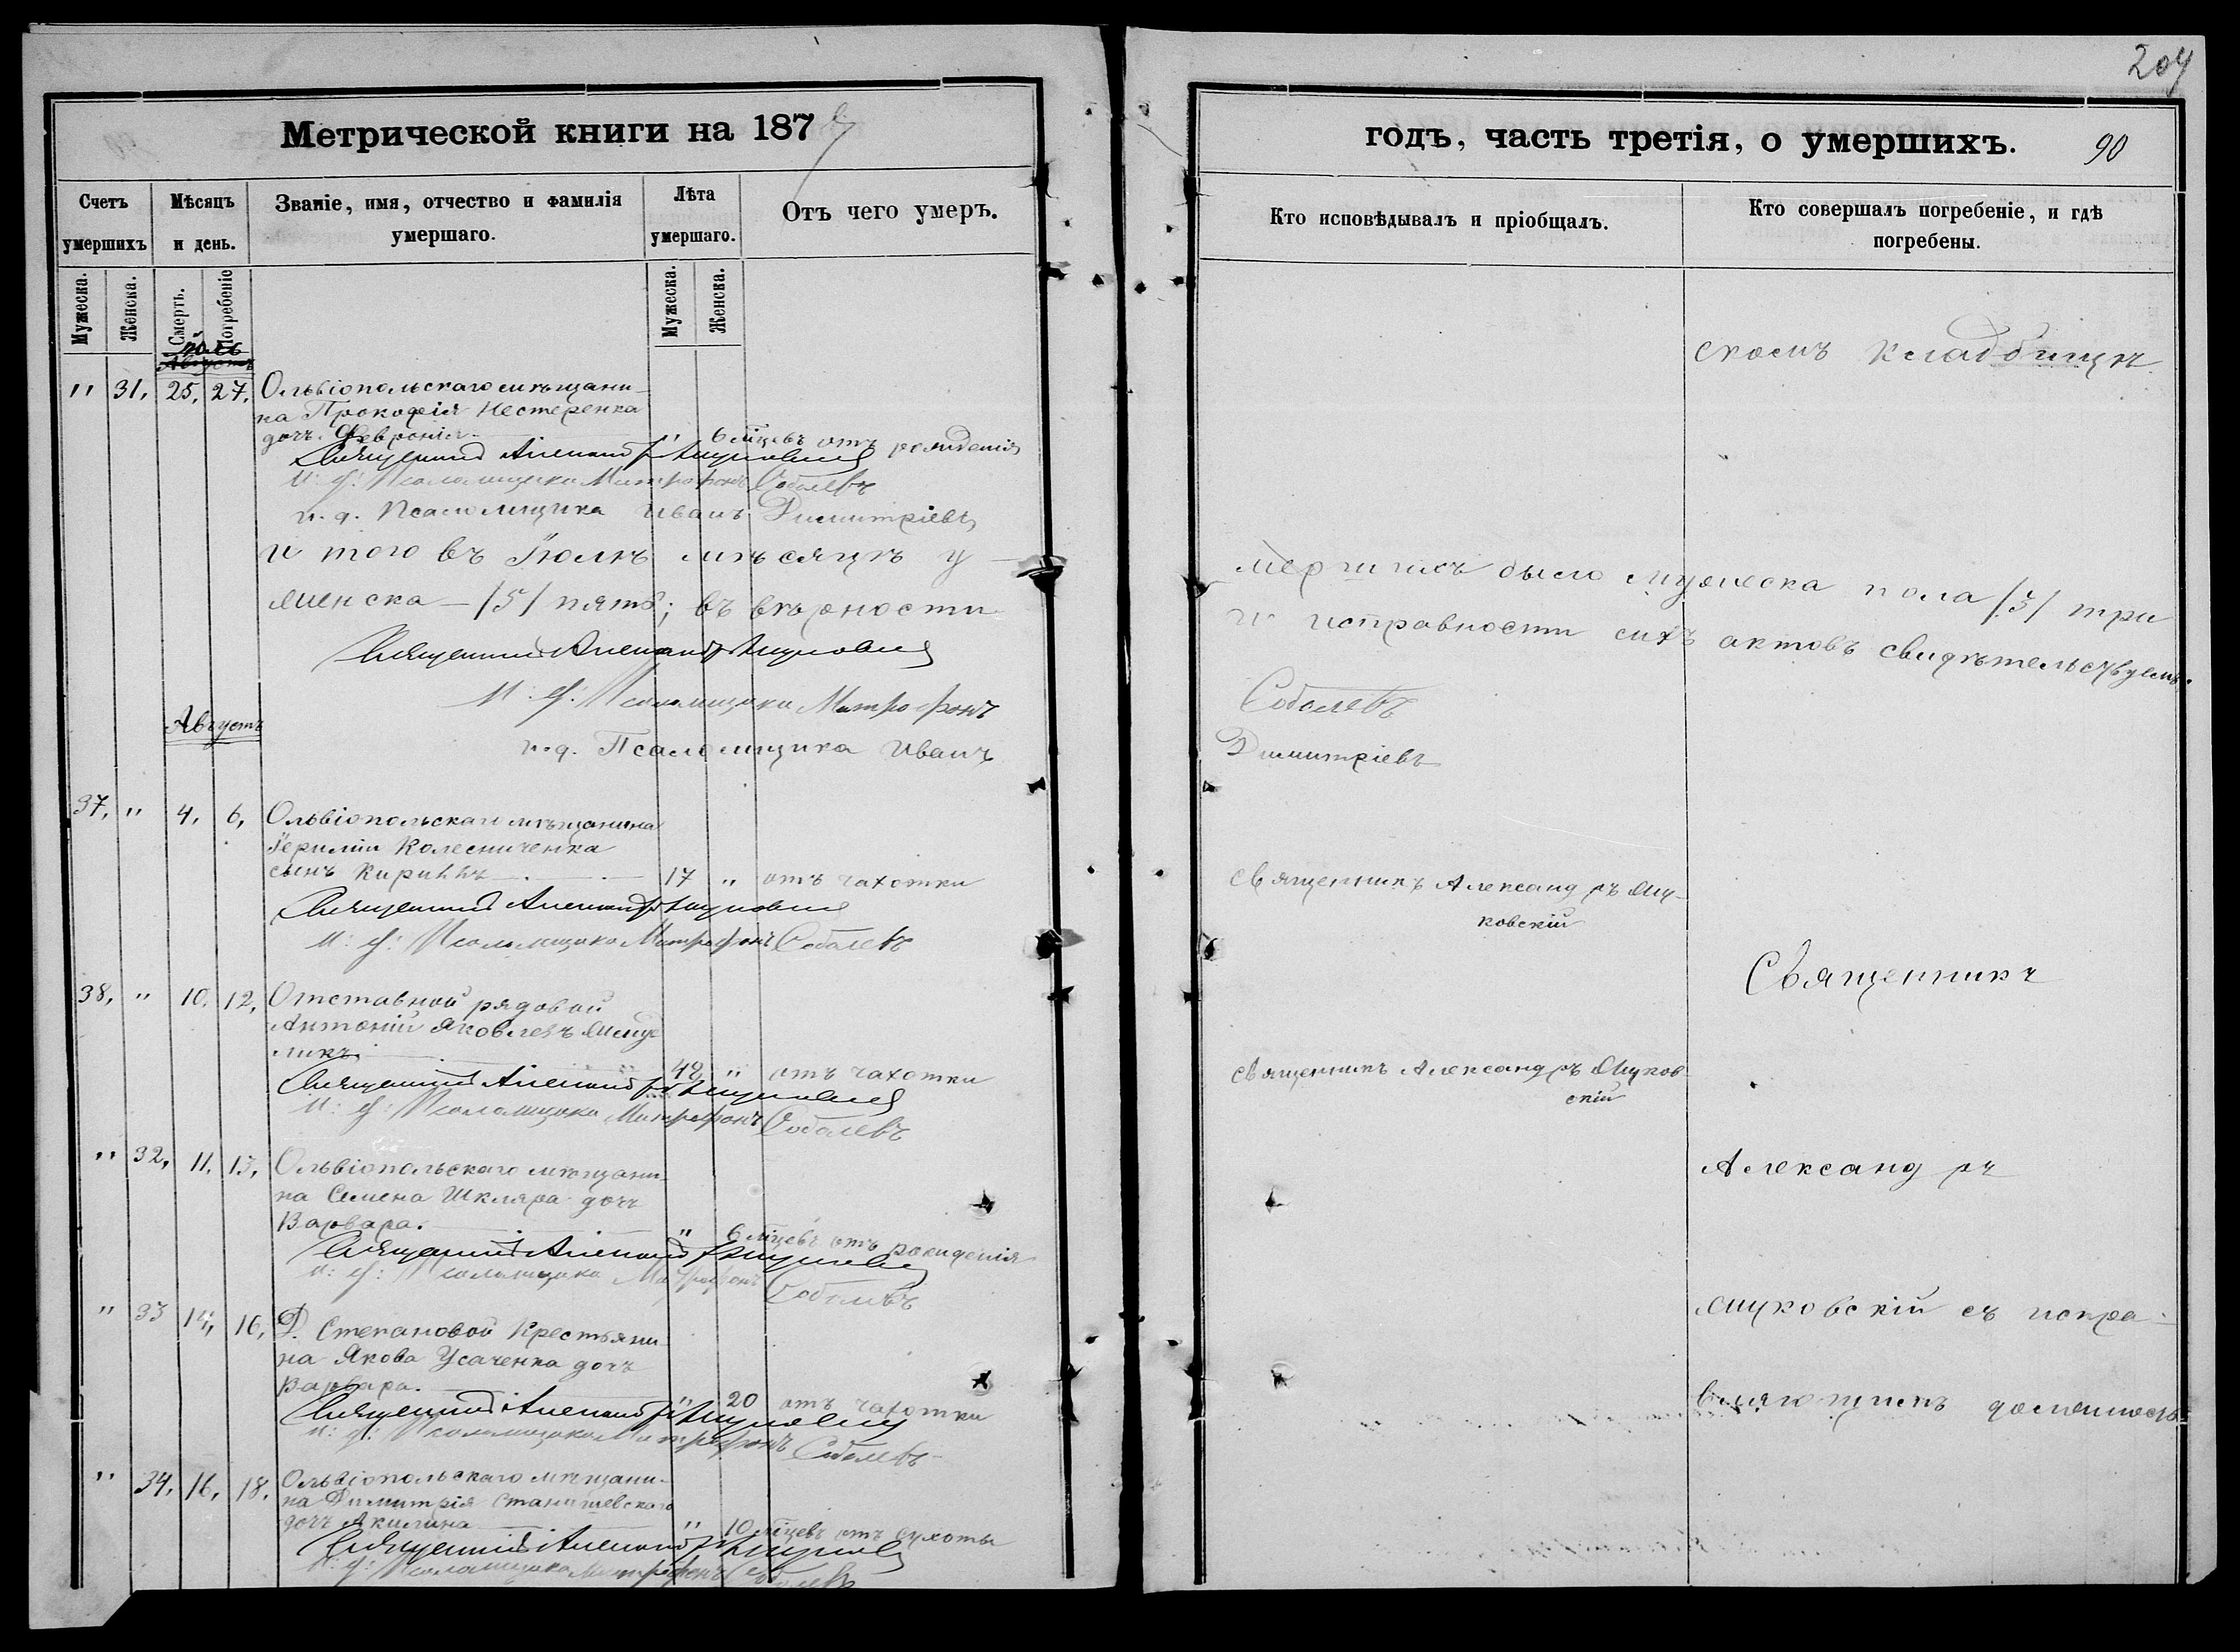 204
Метрической книги на 187
годъ, часть третія, о умершихъ.
90
Счетъ умершихъ
Мѣсяцъ и день.
Званіе, имя, отчество и фамилія умершаго.
Лѣта умершаго.
Отъ чего умеръ.
Кто исповѣдывалъ и пріобщалъ.
Кто совершалъ погребеніе, и гдѣ погребены.
Мужеска.
Женска.
Смерть.
Погребеніе
Мужеска.
Женска.
скомъ кладбищѣ
" 31, 25, 27, Ольвіопольскаго мѣщани-
на Прокофія Нестеренка
дочь Февронія. " 6 мѣцевъ отъ рожденія
Священникъ Александръ Муковскій
И: д: Псаломщика Митрофанъ Соболевъ
и. д. Псаломщика Иванъ Димитріевъ
И того въ Іюлѣ мѣсяцѣ у-
мершихъ было мужеска пола /3/ три
женска - /5/ пять; въ вѣрности
и исправности сихъ актовъ свидѣтельствуемъ.
Священникъ Александръ Муковскій
И: д: Псаломщика Митрофанъ
Соболевъ
Августъ
и. д. Псаломщика Иванъ
Димитріевъ
37, " 4, 6, Ольвіопольскаго мѣщанина
Колесниченка
сынъ Кириллъ 17 " отъ чахотки
Священникъ Александръ Му-
ковскій
Священникъ Александръ Муковскій
И: д: Псаломщика Митрофанъ Соболевъ
Священникъ
38, " 10, 12, Отставной рядовой
Антоній Яковлевъ
48 " отъ чахотки
Священникъ Александръ Муков-
скій
Священникъ Александръ Муковскій
И: д: Псаломщика Митрофанъ Соболевъ
" 32, 11, 13, Ольвіопольскаго мѣщани-
на Семена Шкляра дочь
Варвара. " 6 мѣцевъ отъ рожденія
Александръ
Священникъ Александръ Муковскій
И: д: Псаломщика Митрофанъ Соболевъ
" 33 14, 16, Д. Степановой Крестьяни-
на Якова Усаченка дочь
Варвара. " 20 отъ чахотки
Муковскій съ испра-
вляющимъ должность
Священникъ Александръ Муковскій
И: д: Псаломщика Митрофанъ Соболевъ
" 34, 16, 18, Ольвіопольскаго мѣщани-
на Димитрія Станишевскаго
дочь Акилина " 10 мѣцевъ отъ сухоты
Священникъ Александръ Муковскій
И: д: Псаломщика Митрофанъ Соболевъ